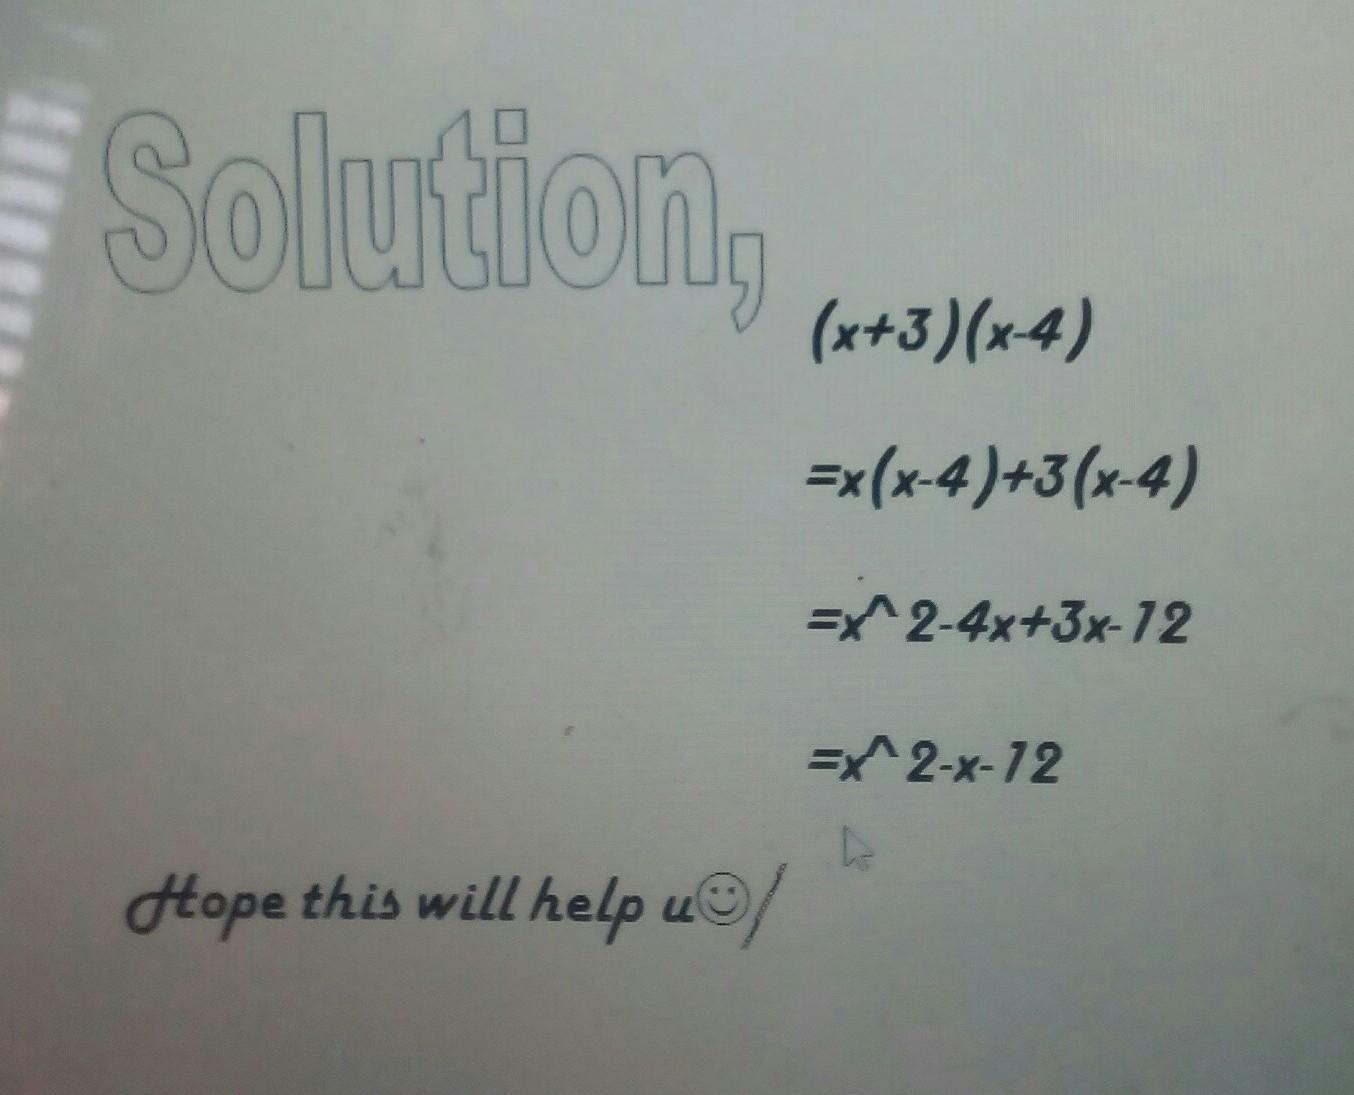 Solution,
(x+3)(x-4)
=x(x-4)+3(x-4)
=x^2-4x+3x-12
=x^2-x-12
Hope this will help u☺/